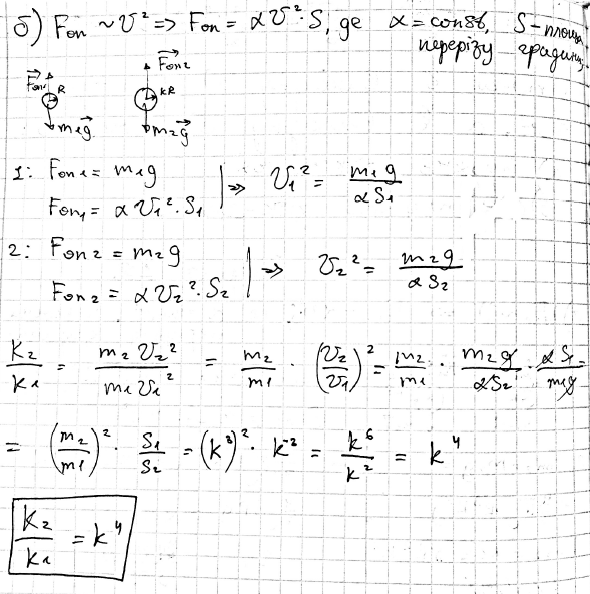 б) Fоп ~ υ² => Fоп = αυ²·S, де α = const, S - площа
перерізу градини
Fоп₁ R
m₁g
Fоп₂ kR
m₂g
1: Fоп₁ = m₁g
Fоп₁ = αυ₁²·S₁ => υ₁² = m₁g / αS₁
2: Fоп₂ = m₂g
Fоп₂ = αυ₂²·S₂ => υ₂² = m₂g / αS₂
K₂/K₁ = m₂υ₂² / m₁υ₁² = m₂/m₁ · (υ₂/υ₁)² = m₂/m₁ · m₂g/αS₂ · αS₁/m₁g =
= (m₂/m₁)² · S₁/S₂ = (k³)² · k⁻² = k⁶/k² = k⁴
K₂/K₁ = k⁴